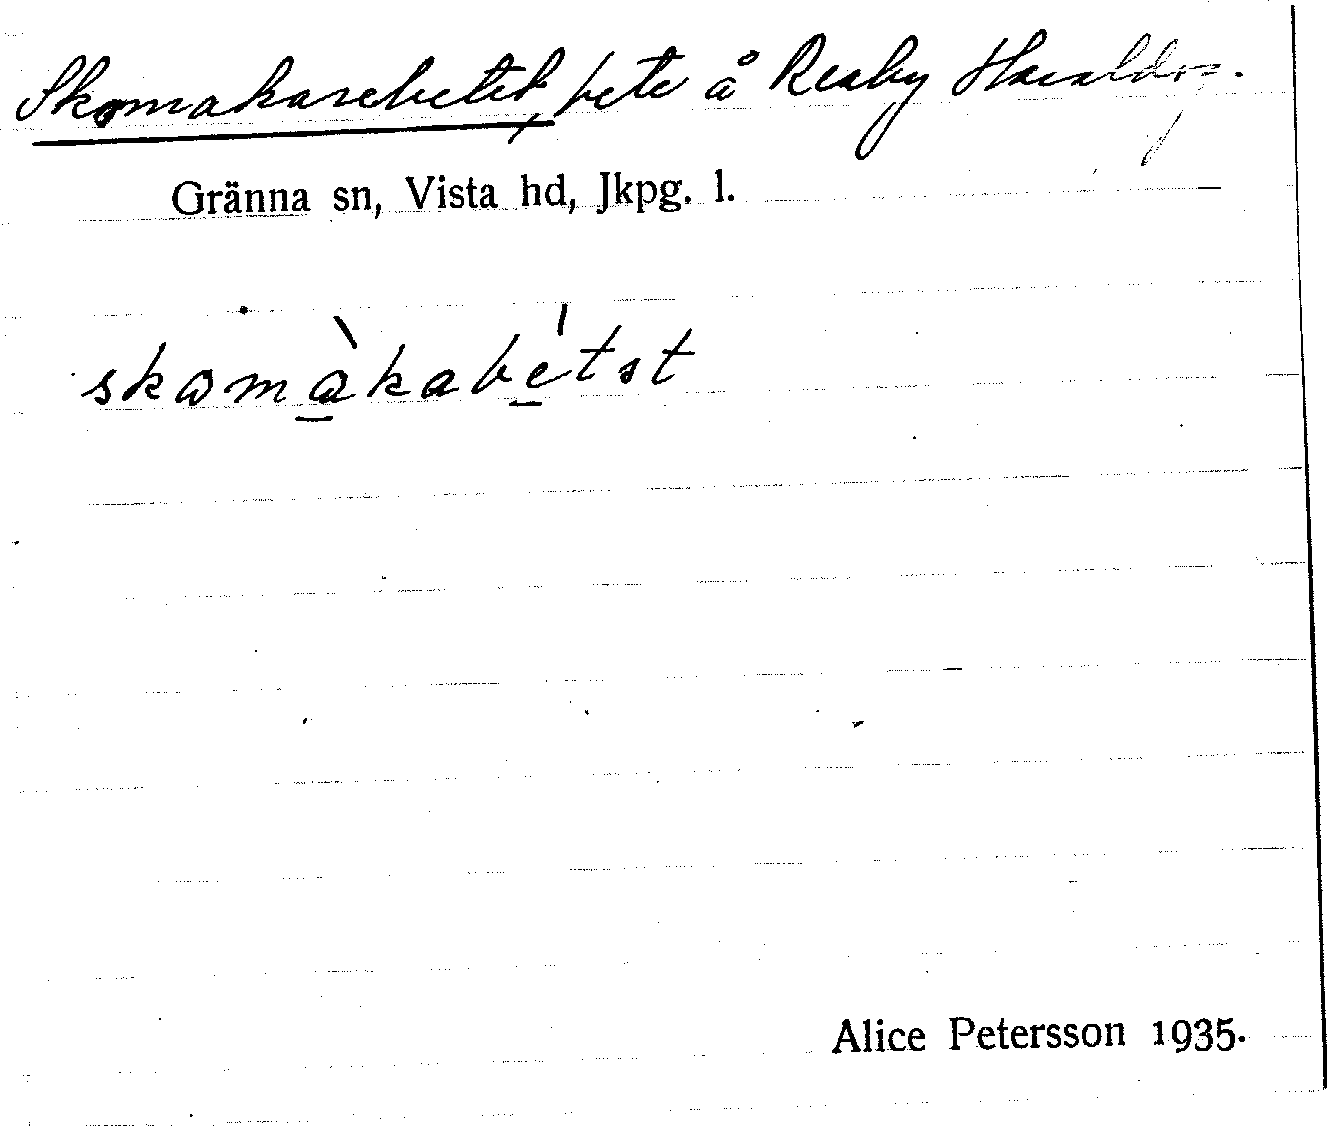 Skomakarebetet, bete å Reaby Haralds.
Gränna sn, Vista hd, Jkpg. l.
skomàkabétət
Alice Petersson 1935.